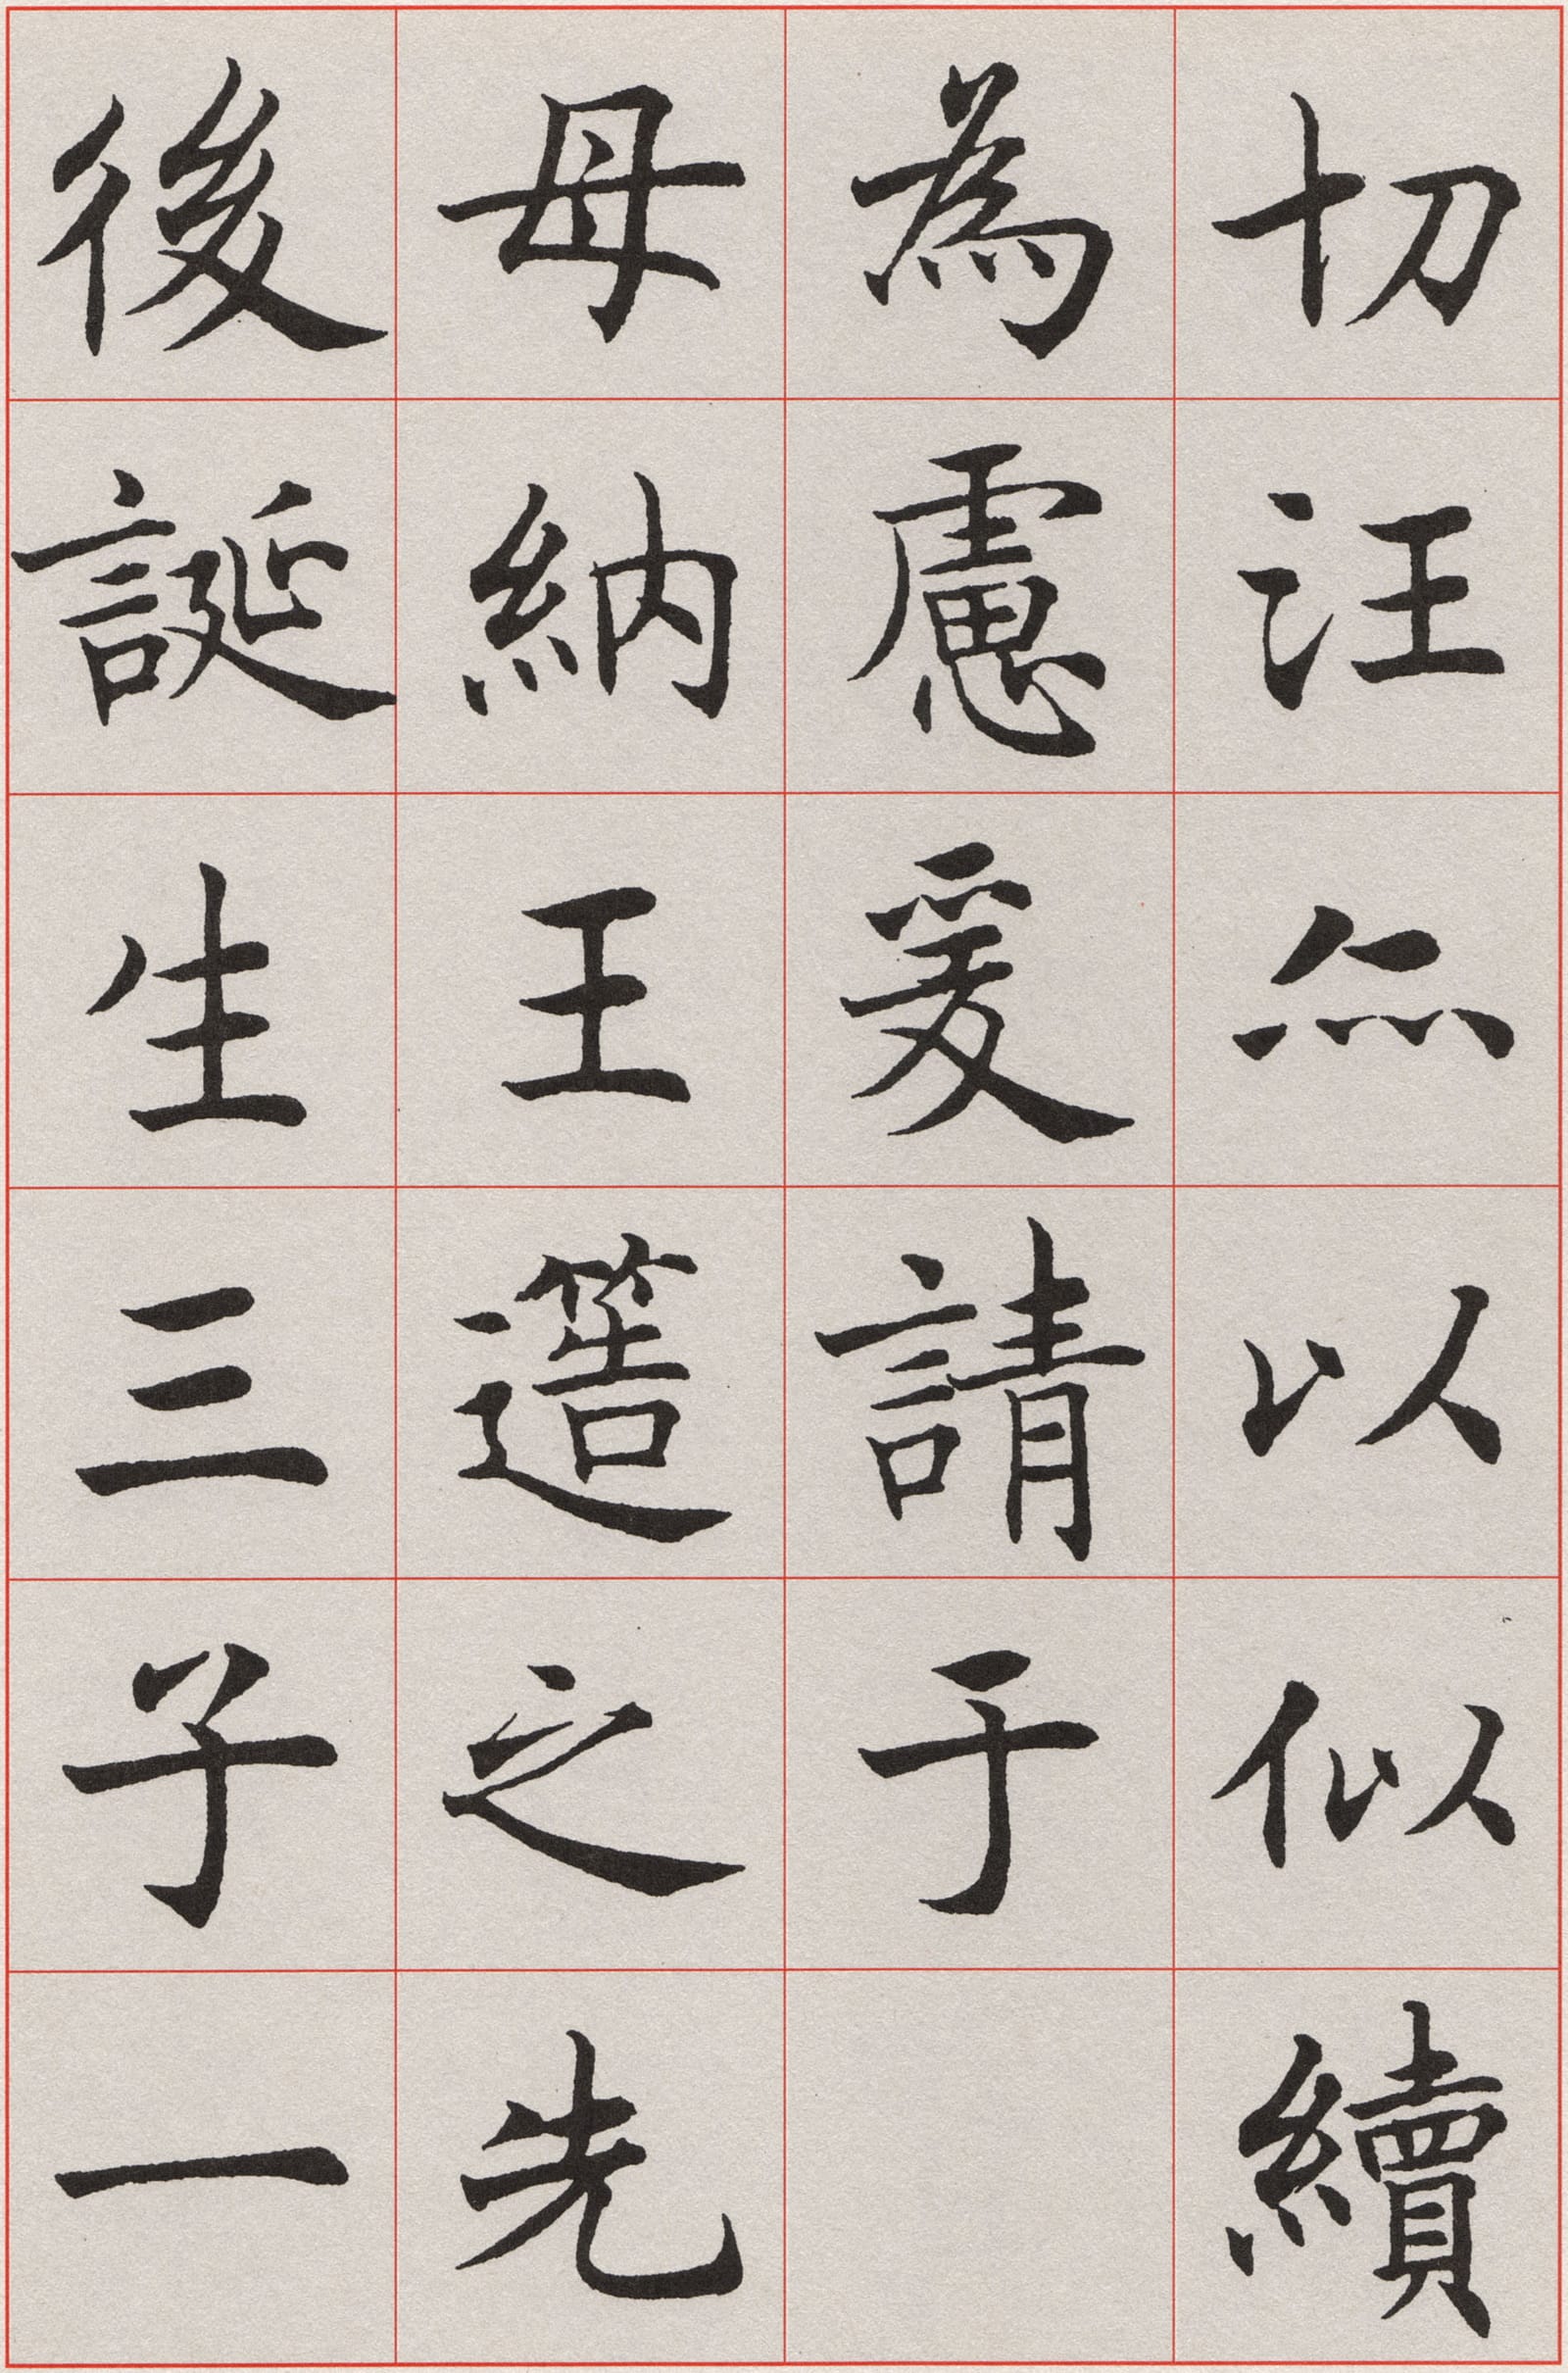 切汪無以似續
為慮爰請于
母納王簉之先
後誕生三子一